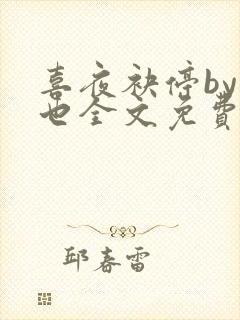 喜夜袂停by
也全文免費
邱春雷